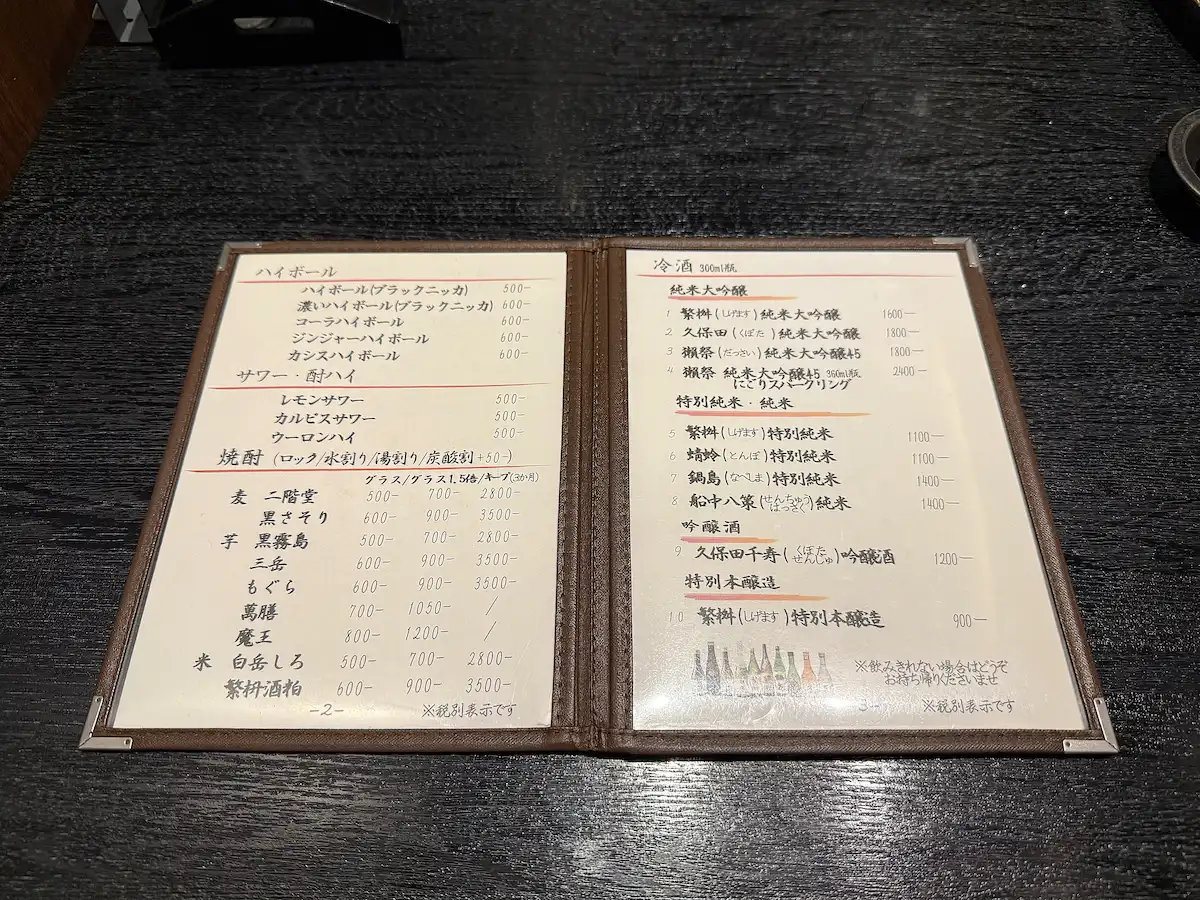 ハイボール
ハイボール(ブラックニッカ) 500-
濃いハイボール(ブラックニッカ) 600-
コーラハイボール 600-
ジンジャーハイボール 600-
カシスハイボール 600-
サワー・酎ハイ
レモンサワー 500-
カルピスサワー 500-
ウーロンハイ 500-
焼酎 (ロック/水割り/湯割り/炭酸割+50-)
グラス/グラス1.5倍/キープ(3か月)
麦 二階堂 500- 700- 2800-
黒さそり 600- 900- 3500-
芋 黒霧島 500- 700- 2800-
三岳 600- 900- 3500-
もぐら 600- 900- 3500-
萬膳 700- 1050- /
魔王 800- 1200- /
米 白岳しろ 500- 700- 2800-
繁枡酒粕 600- 900- 3500-
-2- ※税別表示です
冷酒 300ml瓶
純米大吟醸
1 繁桝(しげます)純米大吟醸 1600-
2 久保田(くぼた)純米大吟醸 1800-
3 獺祭(だっさい)純米大吟醸45 1800-
4 獺祭 純米大吟醸45 360ml瓶 2400-
にごりスパークリング
特別純米・純米
5 繁桝(しげます)特別純米 1100-
6 蜻蛉(とんぼ)特別純米 1100-
7 鍋島(なべしま)特別純米 1400-
8 船中八策(せんちゅうはっさく)純米 1400-
吟醸酒
9 久保田千寿(くぼたせんじゅ)吟醸酒 1200-
特別本醸造
10 繁桝(しげます)特別本醸造 900-
※飲みきれない場合はどうぞ
お持ち帰りくださいませ
3- ※税別表示です